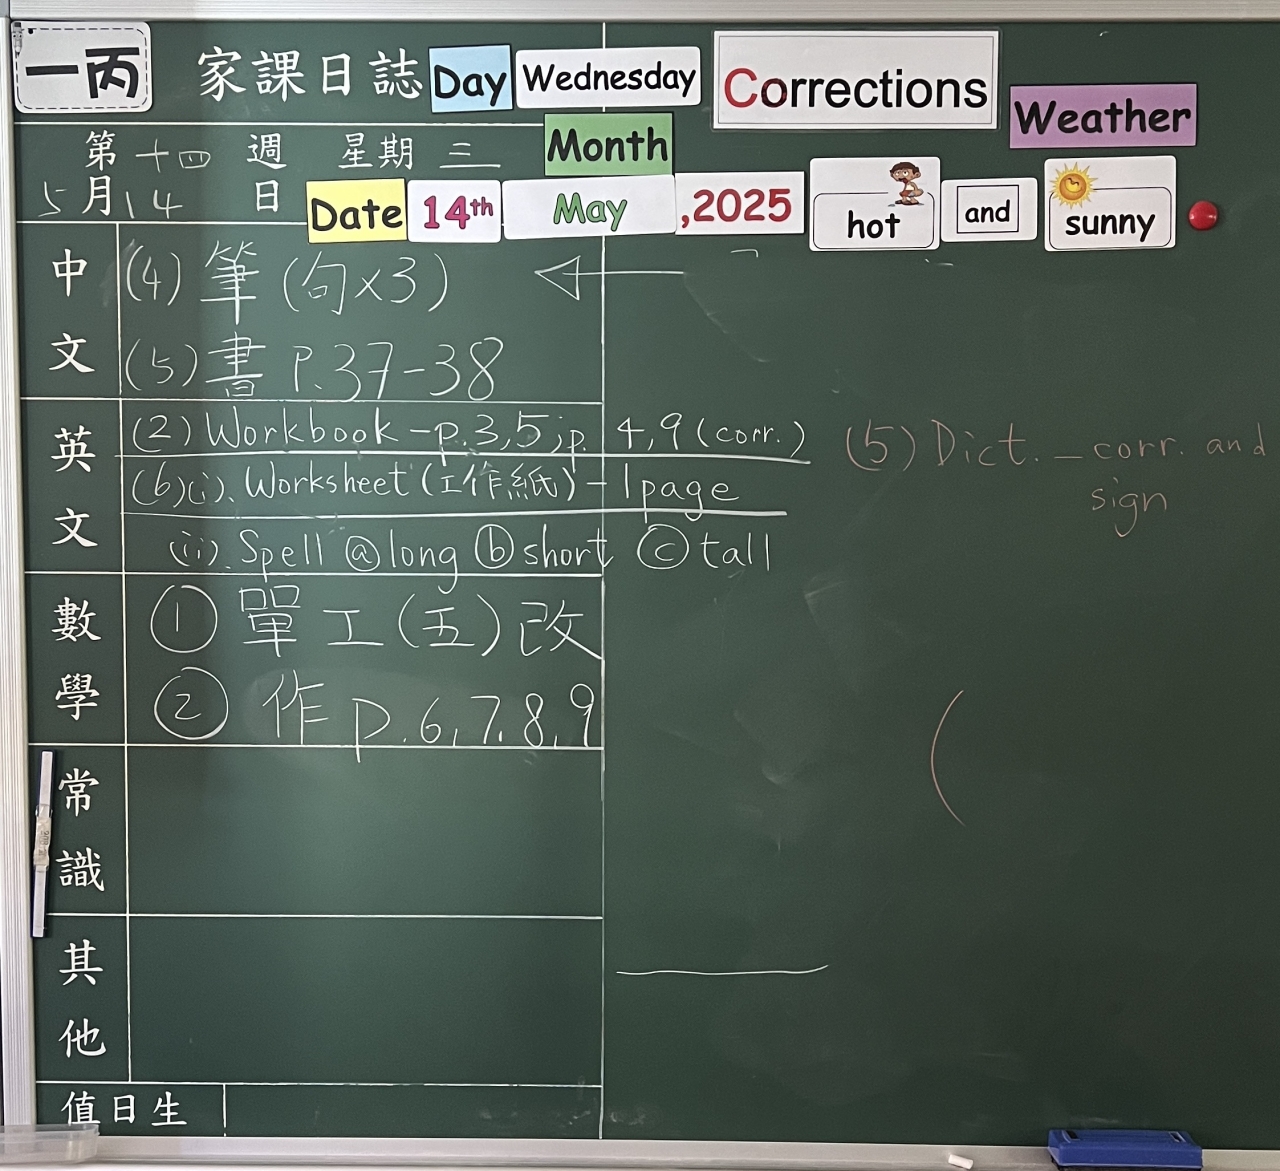 一丙 家課日誌 Day Wednesday Corrections
Weather
第十四週 星期三 Month
5月14日 Date 14th May ,2025 hot and sunny
中文 (4) 筆 (句x3)
(5) 書 P.37-38
英文 (2) Workbook - p.3,5; p. 4,9 (corr.) (5) Dict. - corr. and sign
(6)(i). Worksheet (工作紙) - 1 page
(ii). Spell ⓐ long ⓑ short ⓒ tall
數學 ① 單工(五)改
② 作 p.6,7.8,9
常識
其他
值日生